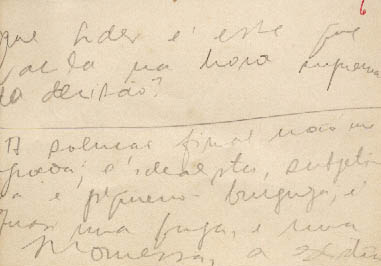 6
que líder é este que
vacila na hora suprema
da decisão?
A solução final não me
agrada; é idealista, subjeti
va e pequeno burguesa, é
quase uma fuga, e uma
promessa, a